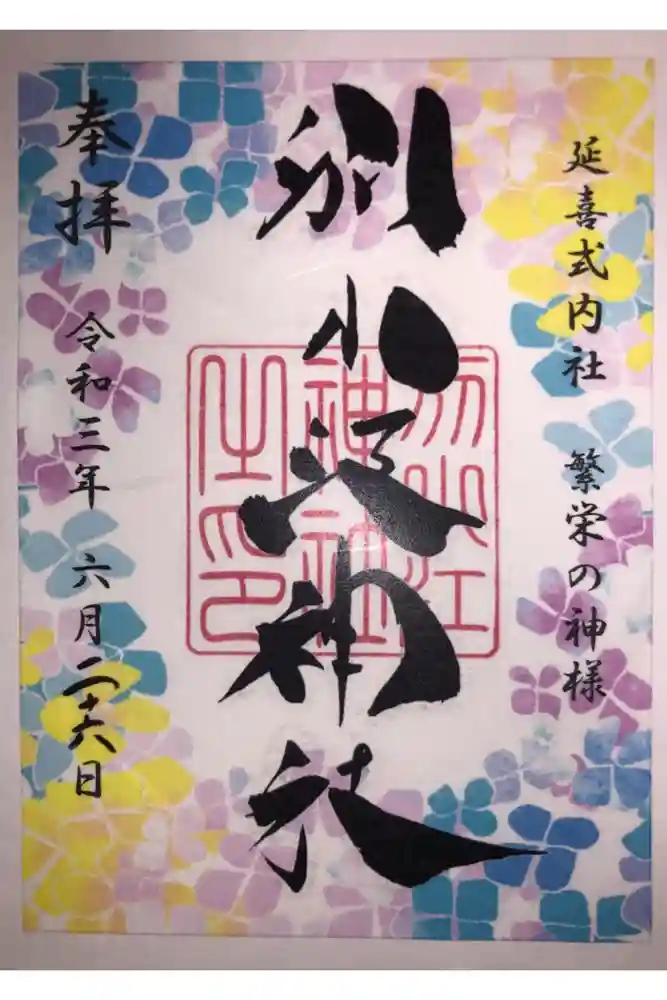 延喜式内社 繁栄の神様
別小江神社
別小江
神社
之印
奉拝
令和三年 六月二十六日